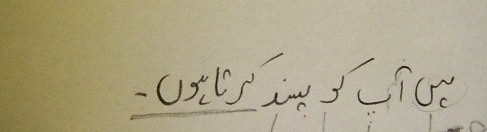 میں آپ کو پسند کرتا ہوں۔